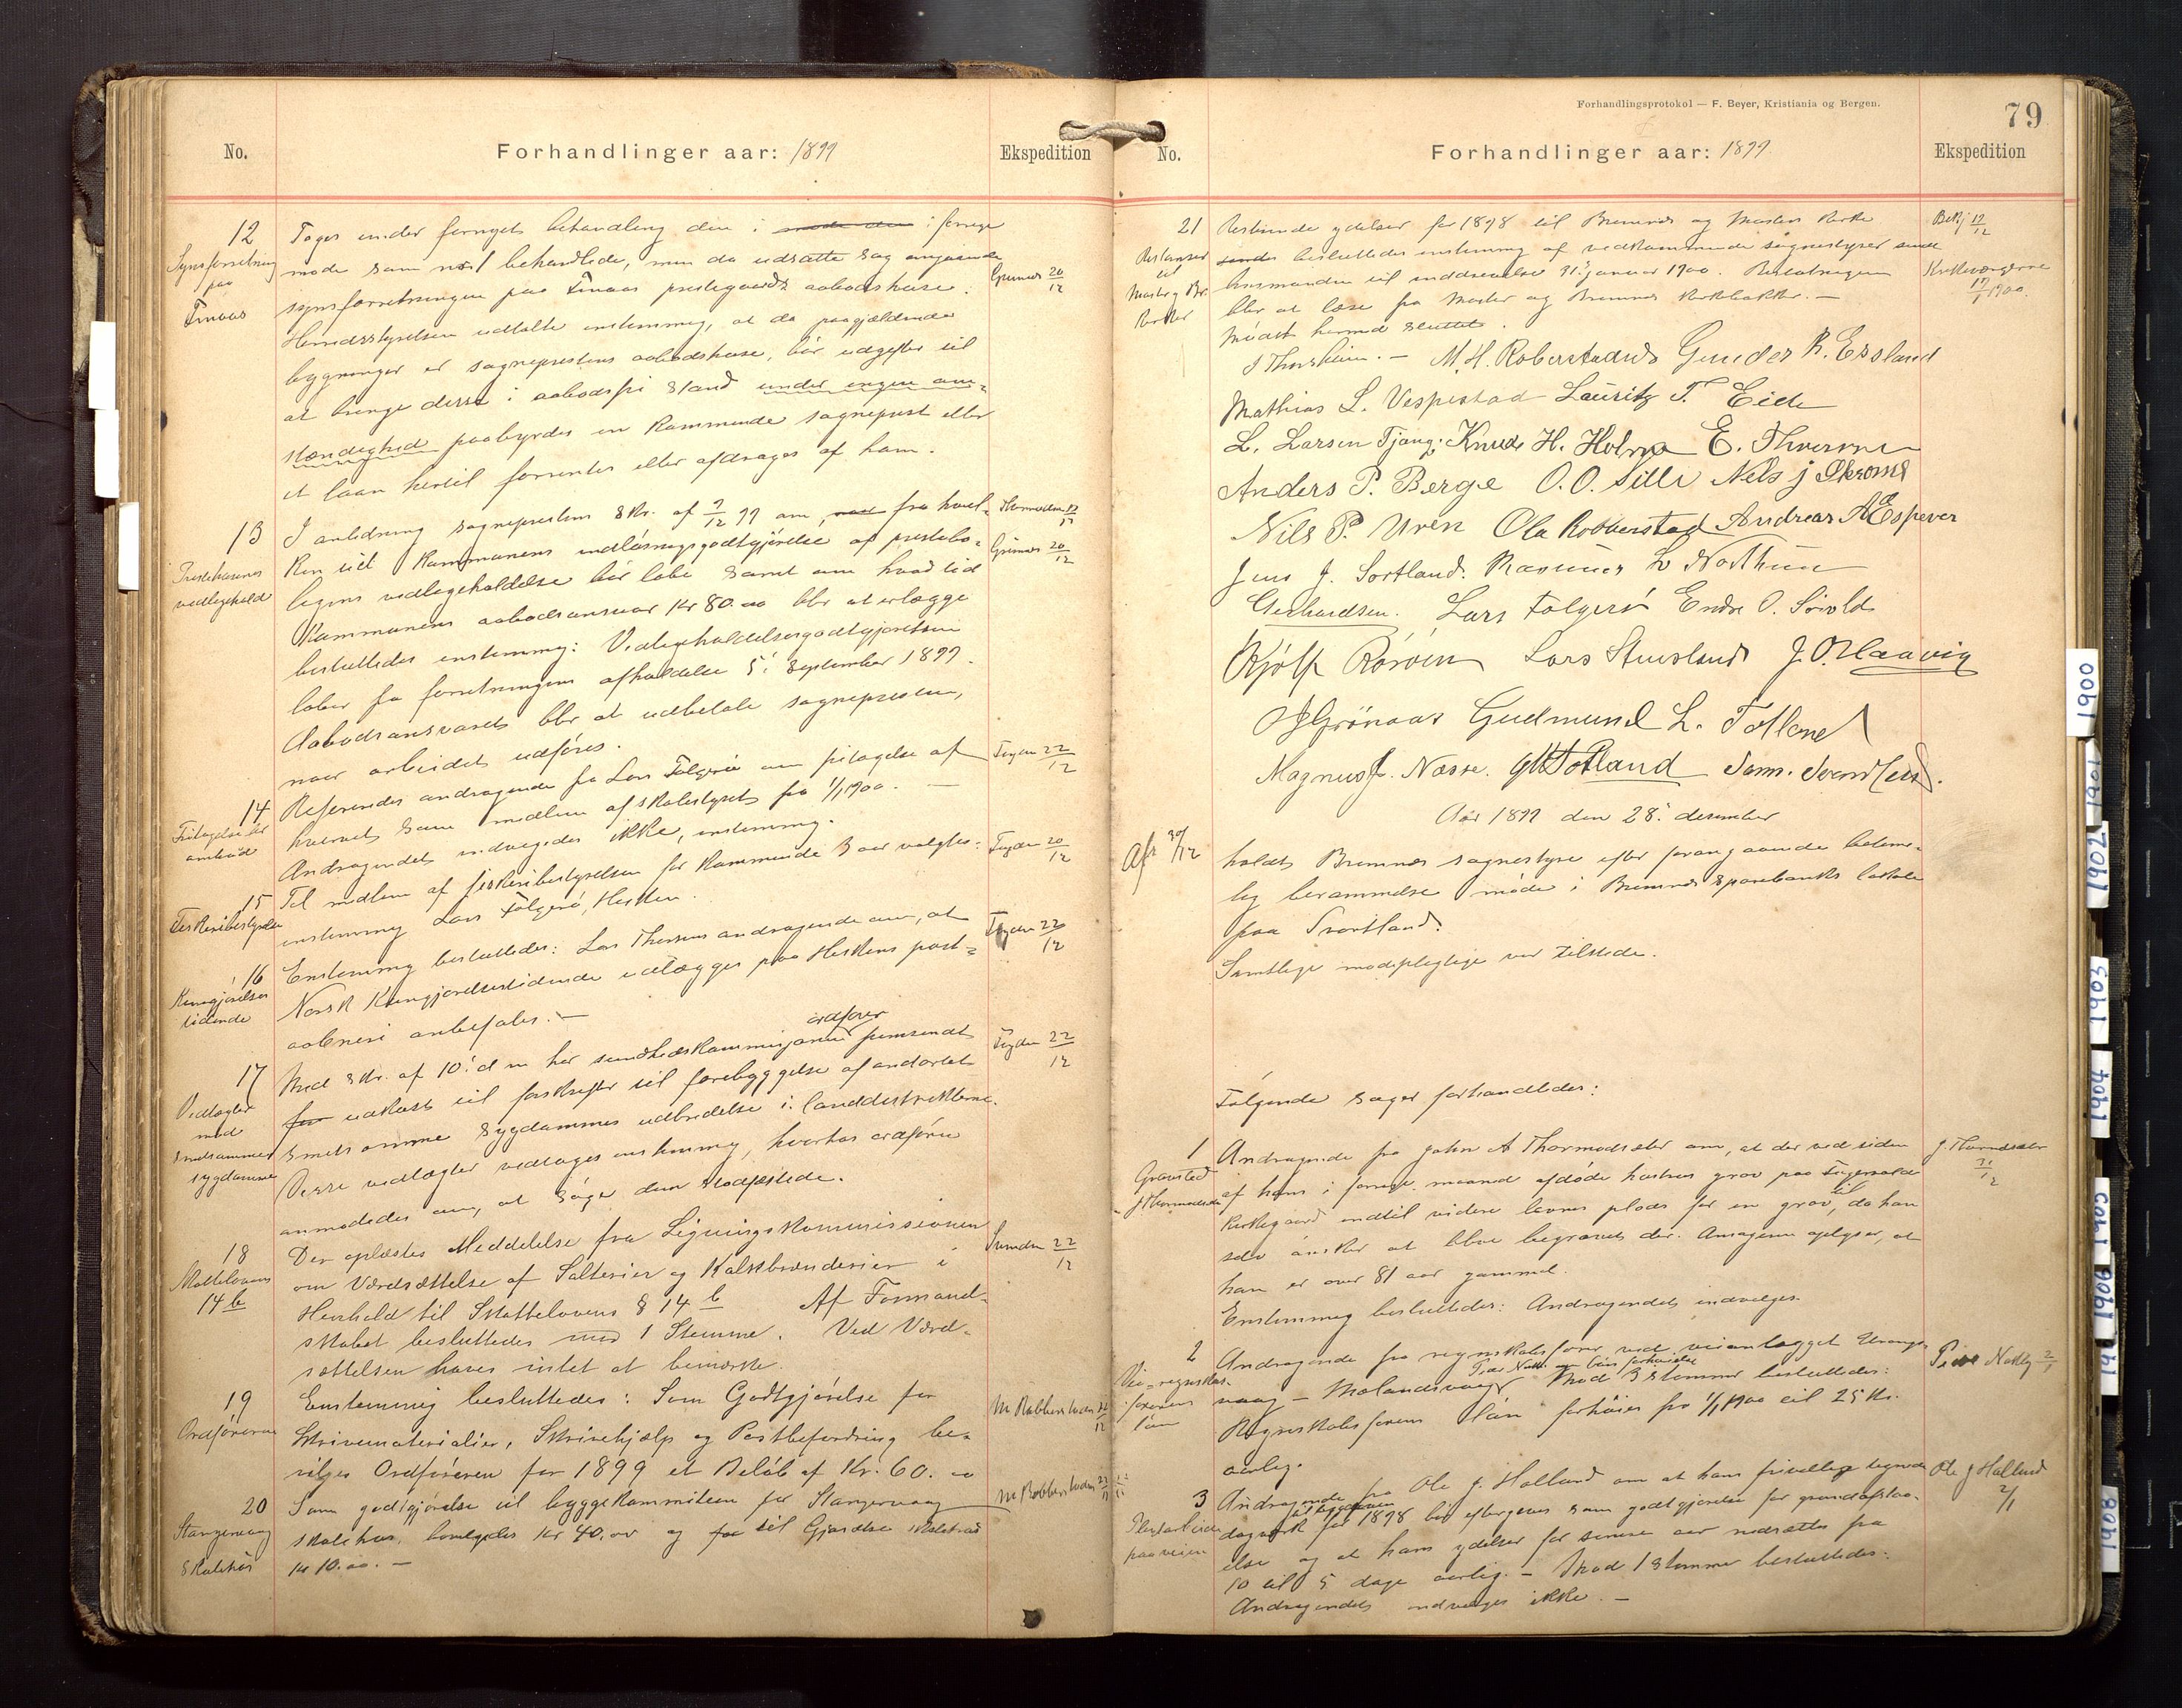 No.
Forhandlinger aar: 1899
Ekspedition
12
Synsforretning
paa
Finaas
Toges under fornyet behandling den i forrige
møde som no 1 behandlede, men da udsatte sag angaaende
synsforretningen paa Finaas prestegaards aabodshuse.
Grimnes 20/12
Herredsstyrelsen udtalte enstemmig, at da paagjældende
bygninger er sogneprestens aabodshuse, bør udgifter til
at bringe disse i aabodsfri stand under ingen om-
stændighed paabyrdes en kommende sogneprest eller
et laan hertil forrentes eller afdrages af ham.
13
Prestehusenes
vedligehold
I anledning sogneprestens skr. af 7/12 99 om, fra hvil-
ken tid kommunens indløsningsgodtgjørelse af prestebo-
ligens vedligeholdelse bør løbe samt om hvad tid
kommunens aabodsansvar kr 80.00 blir at erlægge
Grimnes 20/12
besluttedes enstemmig: Vedligeholdelsesgodtgjørelsen
løber fra forretningens afholdelse 5. september 1899.
Aabodsansvaret blir at udbetale sognepresten,
naar arbeidet udføres.
14
Fritagelse for
ombud
Refereredes andragende fra Lars Følgerø om fritagelse af
hvervet som medlem af skolestyret fra 1/1 1900. —
Andragendet indvilgedes ikke, enstemmig.
22/12
15
Fiskeribestyrelse
Til medlem af fiskeribestyrelsen for kommende 3 aar valgtes:
enstemmig Lars Følgerø, Hisken.
20/12
16
Kundgjørelses
tidende
Enstemmig besluttedes: Lars Thersens andragende om, at
Norsk Kundgjørelsestidende udlægges paa Hiskens post-
aabneri anbefales. —
22/12
17
Vedtægter
mod
smitsomme
sygdomme
Med skr. af 10. d m har sundhedskommissjonens ordfører fremsendt
udkast til forskrifter til forebyggelse af ondartet
smitsomme sygdommes udbredelse i landdistrikterne.
Disse vedtægter vedtoges enstemmig, hvorhos ordføren
anmodedes om, at søge dem stadfæstede.
22/12
18
Skattelovens
14 b
Der oplæstes Meddelelse fra Ligningskommissionen
om Værdsættelse af Salterier og Kalkbrænderier i
Henhold til Skattelovens § 14 b Af Formand-
skabet besluttedes mod 1 Stemme. Ved Værd-
sættelsen haves intet at bemærke.
22/12
19
Ordføreren
Enstemmig besluttedes: Som Godtgjørelse for
Skrivematerialier, Skrivehjælp og Postbefordring be-
vilges Ordføreren for 1899 et Beløb af Kr. 60.00
M Robberstaden 22/12
20
Stangervaag
Skolehus
Som godtgjørelse til byggekommiteen for Stangervaag
skolehus, bevilgedes kr 40.00 og til Gjordelse
kr 10.00. —
M Robberstaden
Forhandlingsprotokol — F. Beyer, Kristiania og Bergen.
79
No.
Forhandlinger aar: 1899
Ekspedition
21
Restanser
til
Moster og Br.
kirker
Restrende ydelser for 1898 til Bremnes og Mosters kirke
besluttedes enstemmig af vedkommende sognestyrer sendt
lensmanden til inddrivelse 31. januar 1900. Beslutningen
blir at læse fra Moster og Bremnes kirkebakke. —
Mødet hermed sluttet.
Bekj 19/12
Kirkeværgerne
17/1 1900.
J Thorsheim. — M. H. Robberstadens Gunder R. Essland
Mathias L. Vespestad Lauritz T. Eide
L. Larsen Tjong. Knud H. Holme E. Thverme
Anders P. Berge O. O. Lille Nels J Skromme
Nils P. Uren Ola Robberstad Andreas A Espever
Jens J. Sortland. Rasmus L Northun
Gerhardsen. Lars Følgerø Endre O. Sørvold
Kjøtt Rørøen Lars Stuesland J. O. Haavig
Grønaas Gudmund L. Totland
Magnus J. Næsse. Totland Søm. Svendsen.
Aar 1899 den 28. desember
Afs 30/12
holdt Bremnes sognestyre efter forangaaende betime-
lig berammelse møde i Bremnes sparebanks lokale
paa Svortland.
Samtlige mødepligtige var tilstede.
Følgende sager forhandledes:
1
Gravsted
J Thormodsæter
Andragende fra John A Thormodsæter om, at der ved siden
af hans i forrige maaned afdøde hustrus grav paa
kirkegaard indtil videre levnes plads for en grav til, da han
selv ønsker at blive begravet der. Ansøgeren oplyser, at
han er over 81 aar gammel.
Enstemmig besluttedes: Andragendet indvilges.
J Thormodsæter
31/12
2
Vei-regnskabs-
førerens
løn
Andragende fra regnskabsfører ved veianlægget Urangs-
vaag - Mælandsvaag Peder Nøkling om løns forhøielse Mod 3 stemmer besluttedes:
Regnskabsførerens løn forhøies fra 1/1 1900 til 25 Kr.
aarlig.
Peder Nøkling 2/1
3
Pligtarbeide
paa veien
Andragende fra Ole J. Halland om at hans frivillige tegnede
dagværk for 1898 bør eftergives som godtgjørelse for grundafstaa-
else og at hans ydelser for senere aar nedsættes fra
10 til 5 dage aarlig. — Mod 1 stemme besluttedes:
Andragendet indvilges ikke. —
Ole J Halland
2/1
1900
1901
1902
1903
1904
1905
1906
1907
1908